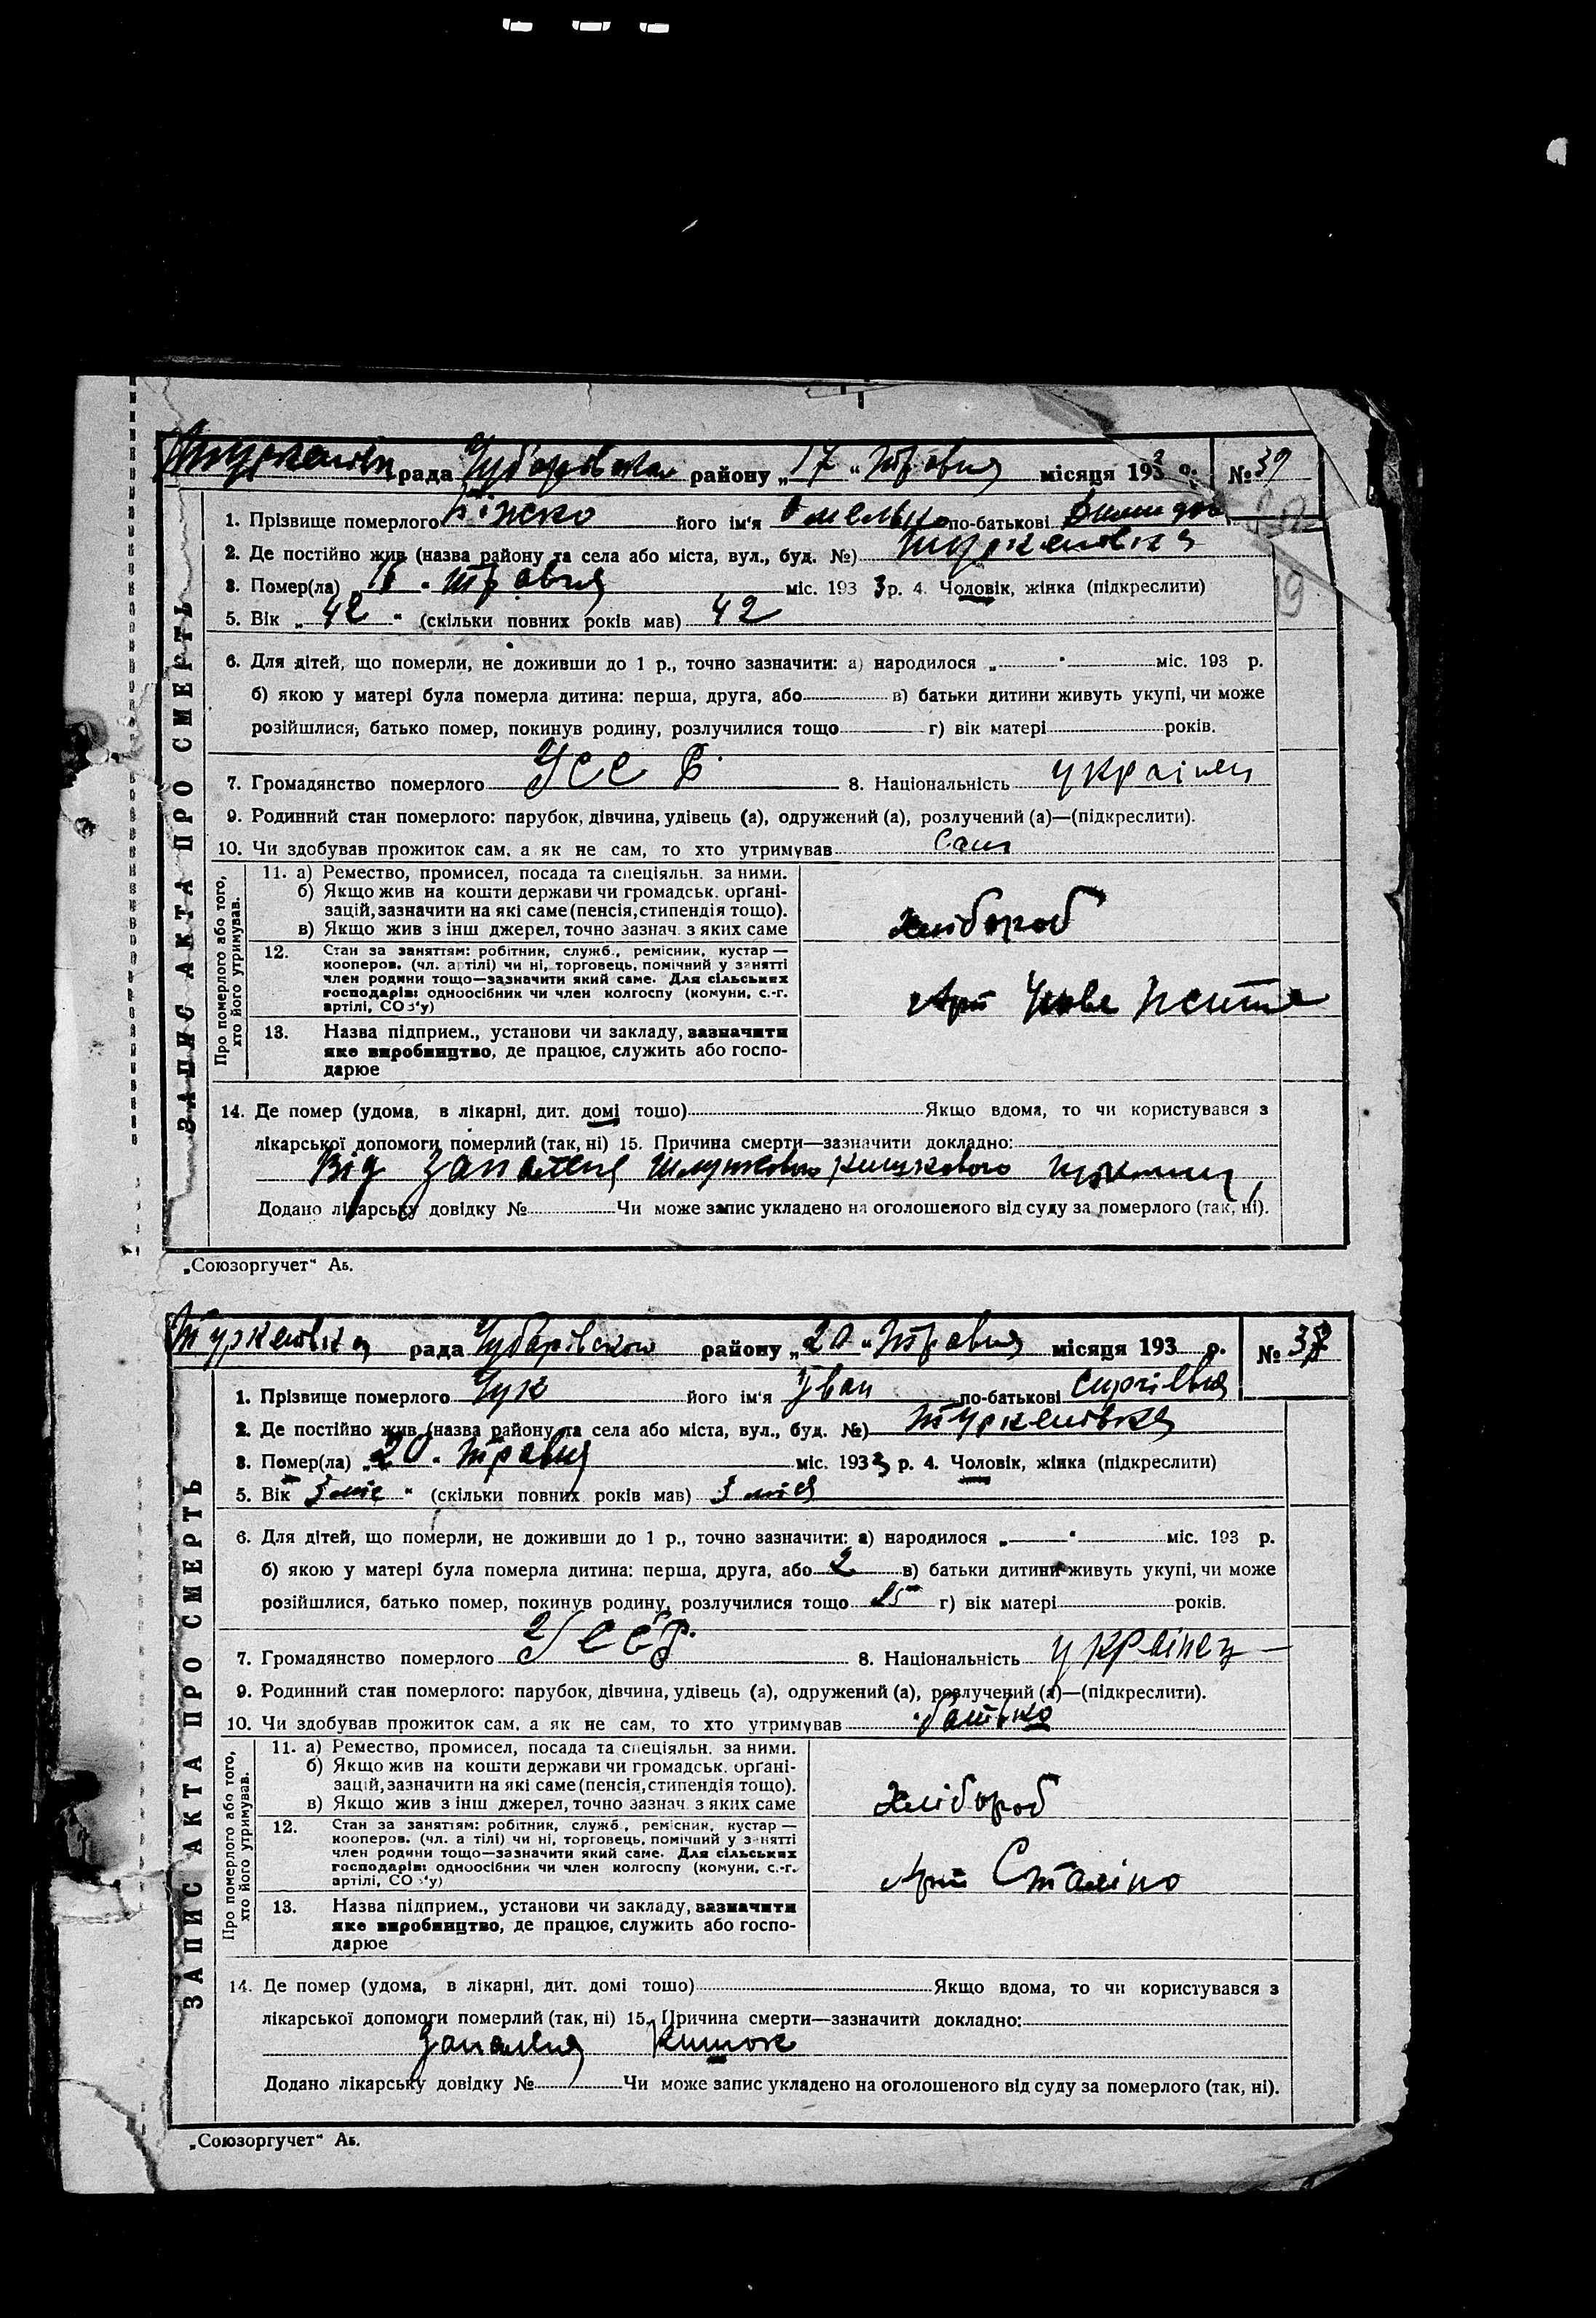 Туркенівка рада Чубарівського району „17“ травня місяця 1933 р. № 39
ЗАПИС АКТА ПРО СМЕРТЬ
1. Прізвище померлого його ім'я Омелько по-батькові
2. Де постійно жив (назва району та села або міста, вул., буд. №) Туркенівка
3. Помер(ла) „ “ травня міс. 1933 р. 4. Чоловік, жінка (підкреслити)
5. Вік „42“ (скільки повних років мав) 42
6. Для дітей, що померли, не доживши до 1 р., точно зазначити: а) народилося „ “ міс. 193 р.
б) якою у матері була померла дитина: перша, друга, або в) батьки дитини живуть укупі, чи може
розійшлися, батько помер, покинув родину, розлучилися тощо г) вік матері років.
7. Громадянство померлого УССР 8. Національність українец
9. Родинний стан померлого: парубок, дівчина, удівець (а), одружений (а), розлучений (а)—(підкреслити).
10. Чи здобував прожиток сам, а як не сам, то хто утримував Сам
Про померлого або того, хто його утримував.
11. а) Ремество, промисел, посада та спеціяльн. за ними.
б) Якщо жив на кошти держави чи громадськ. орґані-
зацій, зазначити на які саме (пенсія, стипендія тощо).
в) Якщо жив з інш джерел, точно зазнач. з яких саме
хлібороб
12. Стан за заняттям: робітник, служб., ремісник, кустар —
кооперов. (чл. артілі) чи ні, торговець, помічний у занятті
член родини тощо—зазначити який саме. Для сільських
господарів: одноосібник чи член колгоспу (комуни, с.-г.
артілі, СОЗ'у)
Арт
13. Назва підприєм., установи чи закладу, зазначити
яке виробництво, де працює, служить або госпо-
дарює
14. Де помер (удома, в лікарні, дит. домі тошо) Якщо вдома, то чи користувався з
лікарської допомоги померлий (так, ні) 15. Причина смерти—зазначити докладно:
Від запаленя
Додано лікарську довідку № Чи може запис укладено на оголошеного від суду за померлого (так, ні).
„Союзоргучет“ Аь.
Туркенівка рада Чубарівського району „20“ травня місяця 193 р. №
ЗАПИС АКТА ПРО СМЕРТЬ
1. Прізвище померлого Чук його ім'я Іван по-батькові
2. Де постійно жив (назва району та села або міста, вул., буд. №) Туркенівка
3. Помер(ла) „20“ травня міс. 1933 р. 4. Чоловік, жінка (підкреслити)
5. Вік „3 міс“ (скільки повних років мав) 3 міся
6. Для дітей, що померли, не доживши до 1 р., точно зазначити: а) народилося „ “ міс. 193 р.
б) якою у матері була померла дитина: перша, друга, або 2 в) батьки дитини живуть укупі, чи може
розійшлися, батько помер, покинув родину, розлучилися тощо 25 г) вік матері років.
7. Громадянство померлого УССР 8. Національність українец
9. Родинний стан померлого: парубок, дівчина, удівець (а), одружений (а), розлучений (а)—(підкреслити).
10. Чи здобував прожиток сам, а як не сам, то хто утримував батько
Про померлого або того, хто його утримував.
11. а) Ремество, промисел, посада та спеціяльн. за ними.
б) Якщо жив на кошти держави чи громадськ. орґані-
зацій, зазначити на які саме (пенсія, стипендія тощо).
в) Якщо жив з інш джерел, точно зазнач. з яких саме
хлібороб
12. Стан за заняттям: робітник, служб., ремісник, кустар —
кооперов. (чл. а тілі) чи ні, торговець, помічний у занятті
член родини тощо—зазначити який саме. Для сільських
господарів: одноосібник чи член колгоспу (комуни, с.-г.
артілі, СО 'у)
Арт Сталіно
13. Назва підприєм., установи чи закладу, зазначити
яке виробництво, де працює, служить або госпо-
дарює
14. Де помер (удома, в лікарні, дит. домі тошо) Якщо вдома, то чи користувався з
лікарської допомоги померлий (так, ні) 15. Причина смерти—зазначити докладно:
Запаленя кишок
Додано лікарську довідку № Чи може запис укладено на оголошеного від суду за померлого (так, ні).
„Союзоргучет“ Аь.